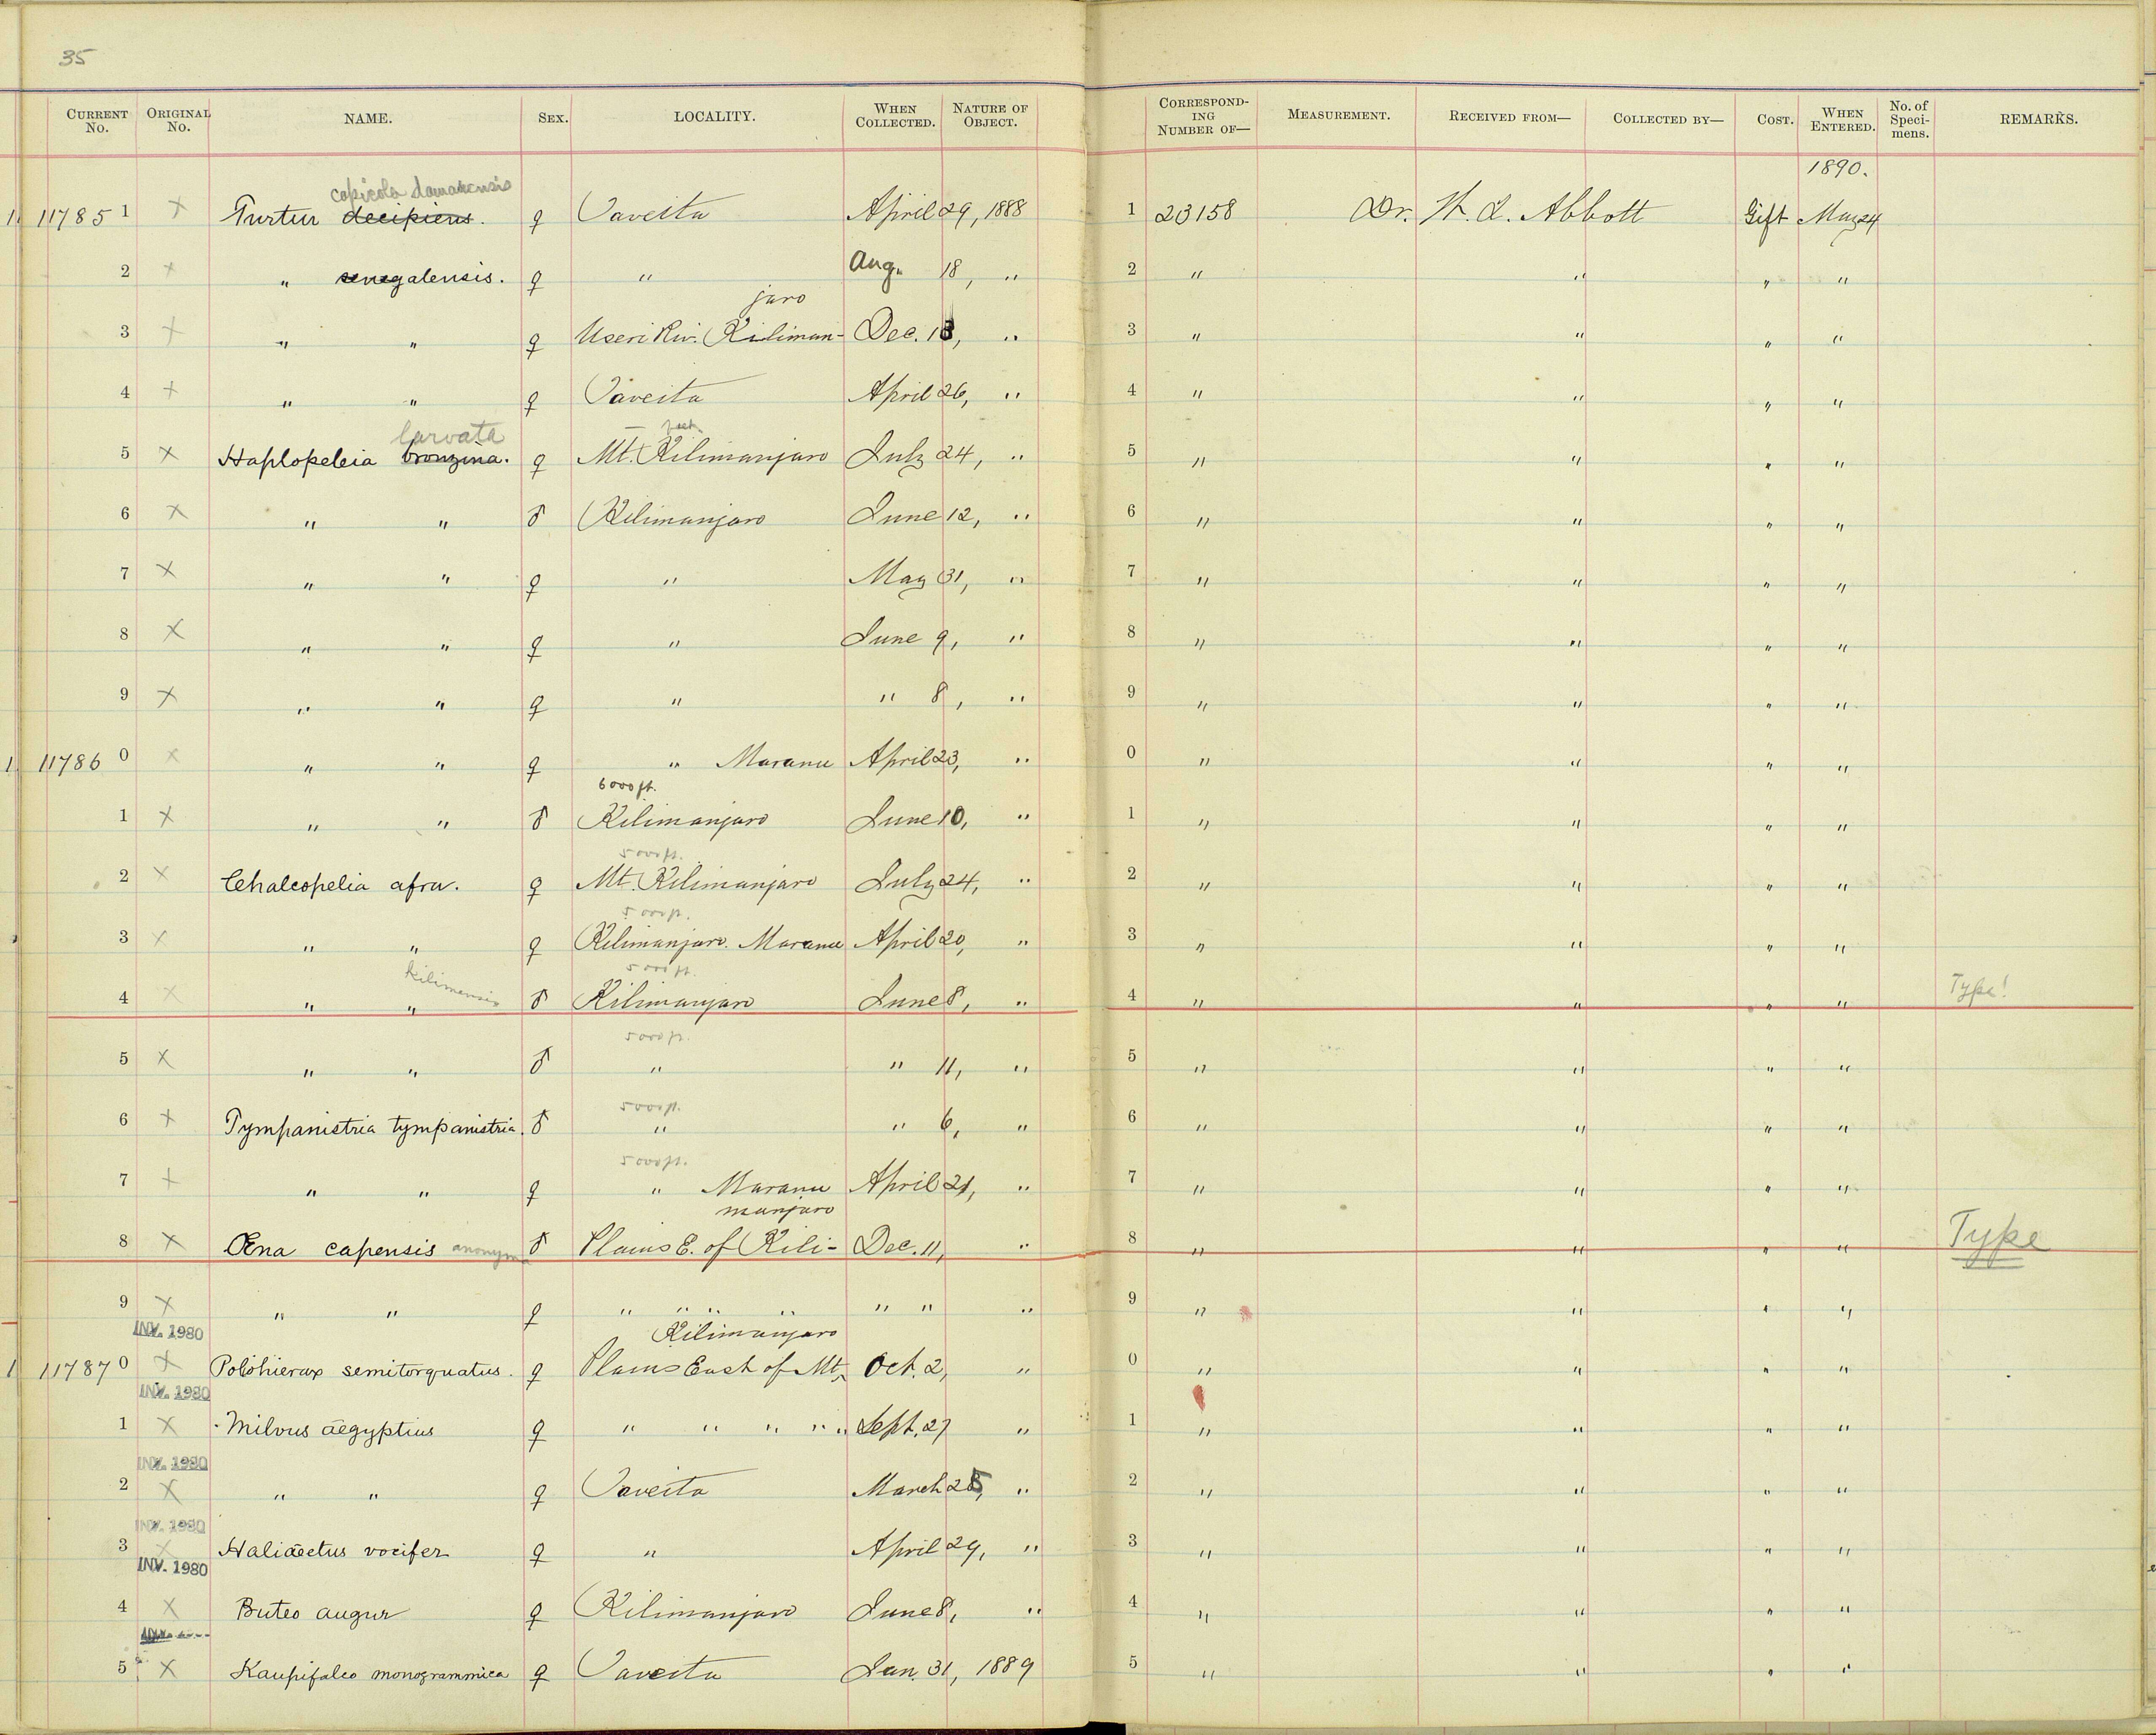 35
CURRENT No. ORIGINAL No. NAME. SEX. LOCALITY. WHEN COLLECTED. NATURE OF OBJECT. CORRESPONDING NUMBER OF— MEASUREMENT. RECEIVED FROM— COLLECTED BY— COST. WHEN ENTERED. No. of Specimens. REMARKS.
1890.
capicola damarensis
1 11785 1 × Turtur decipiens. ♀ Taveita April 29, 1888 1 23158 Dr. W. L. Abbott Gift May 24
2 × " senegalensis. ♀ " Aug. 18, " 2 " " " "
jaro
3 × " " ♀ Useri Riv. Kiliman- Dec. 13, " 3 " " " "
4 × " " ♀ Taveita April 26, " 4 " " " "
larvata
5 × Haplopeleia bronzina. ♀ Mt. Kilimanjaro July 24, " 5 " " " "
6 × " " ♂ Kilimanjaro June 12, " 6 " " " "
7 × " " ♀ " May 31, " 7 " " " "
8 × " " ♀ " June 9, " 8 " " " "
9 × " " ♀ " " 8, " 9 " " " "
1 11786 0 × " " ♀ " Maranu April 23, " 0 " " " "
6000 ft.
1 × " " ♂ Kilimanjaro June 10, " 1 " " " "
5000 ft.
2 × Chalcopelia afra. ♀ Mt. Kilimanjaro July 24, " 2 " " " "
5000 ft.
3 × " " ♀ Kilimanjaro. Maranu April 20, " 3 " " " "
kilimensis 5000 ft.
4 × " " ♂ Kilimanjaro June 8, " 4 " " " " Type!
5000 ft.
5 × " " ♂ " " 11, " 5 " " " "
5000 ft.
6 × Tympanistria tympanistria. ♂ " " 6, " 6 " " " "
5000 ft.
7 × " " ♀ " Maranu April 21, " 7 " " " "
manjaro
8 × Œna capensis anonyma ♂ Plains E. of Kili- Dec. 11, " 8 " " " " Type
9 × " " ♀ " " " " " " " 9 " " " "
INV. 1980 Kilimanjaro
1 11787 0 × Poliohierax semitorquatus. ♀ Plains East of Mt. Oct. 2, " 0 " " " "
INV. 1980
1 × Milvus ægyptius ♀ " " " " " Sept. 27 " 1 " " " "
INV. 1980
2 × " " ♀ Taveita March 25, " 2 " " " "
INV. 1980
3 × Haliäetus vocifer ♀ " April 29, " 3 " " " "
INV. 1980
4 × Buteo augur ♀ Kilimanjaro June 8, " 4 " " " "
5 × Kaupifalco monogrammica ♀ Taveita Jan. 31, 1889 5 " " " "